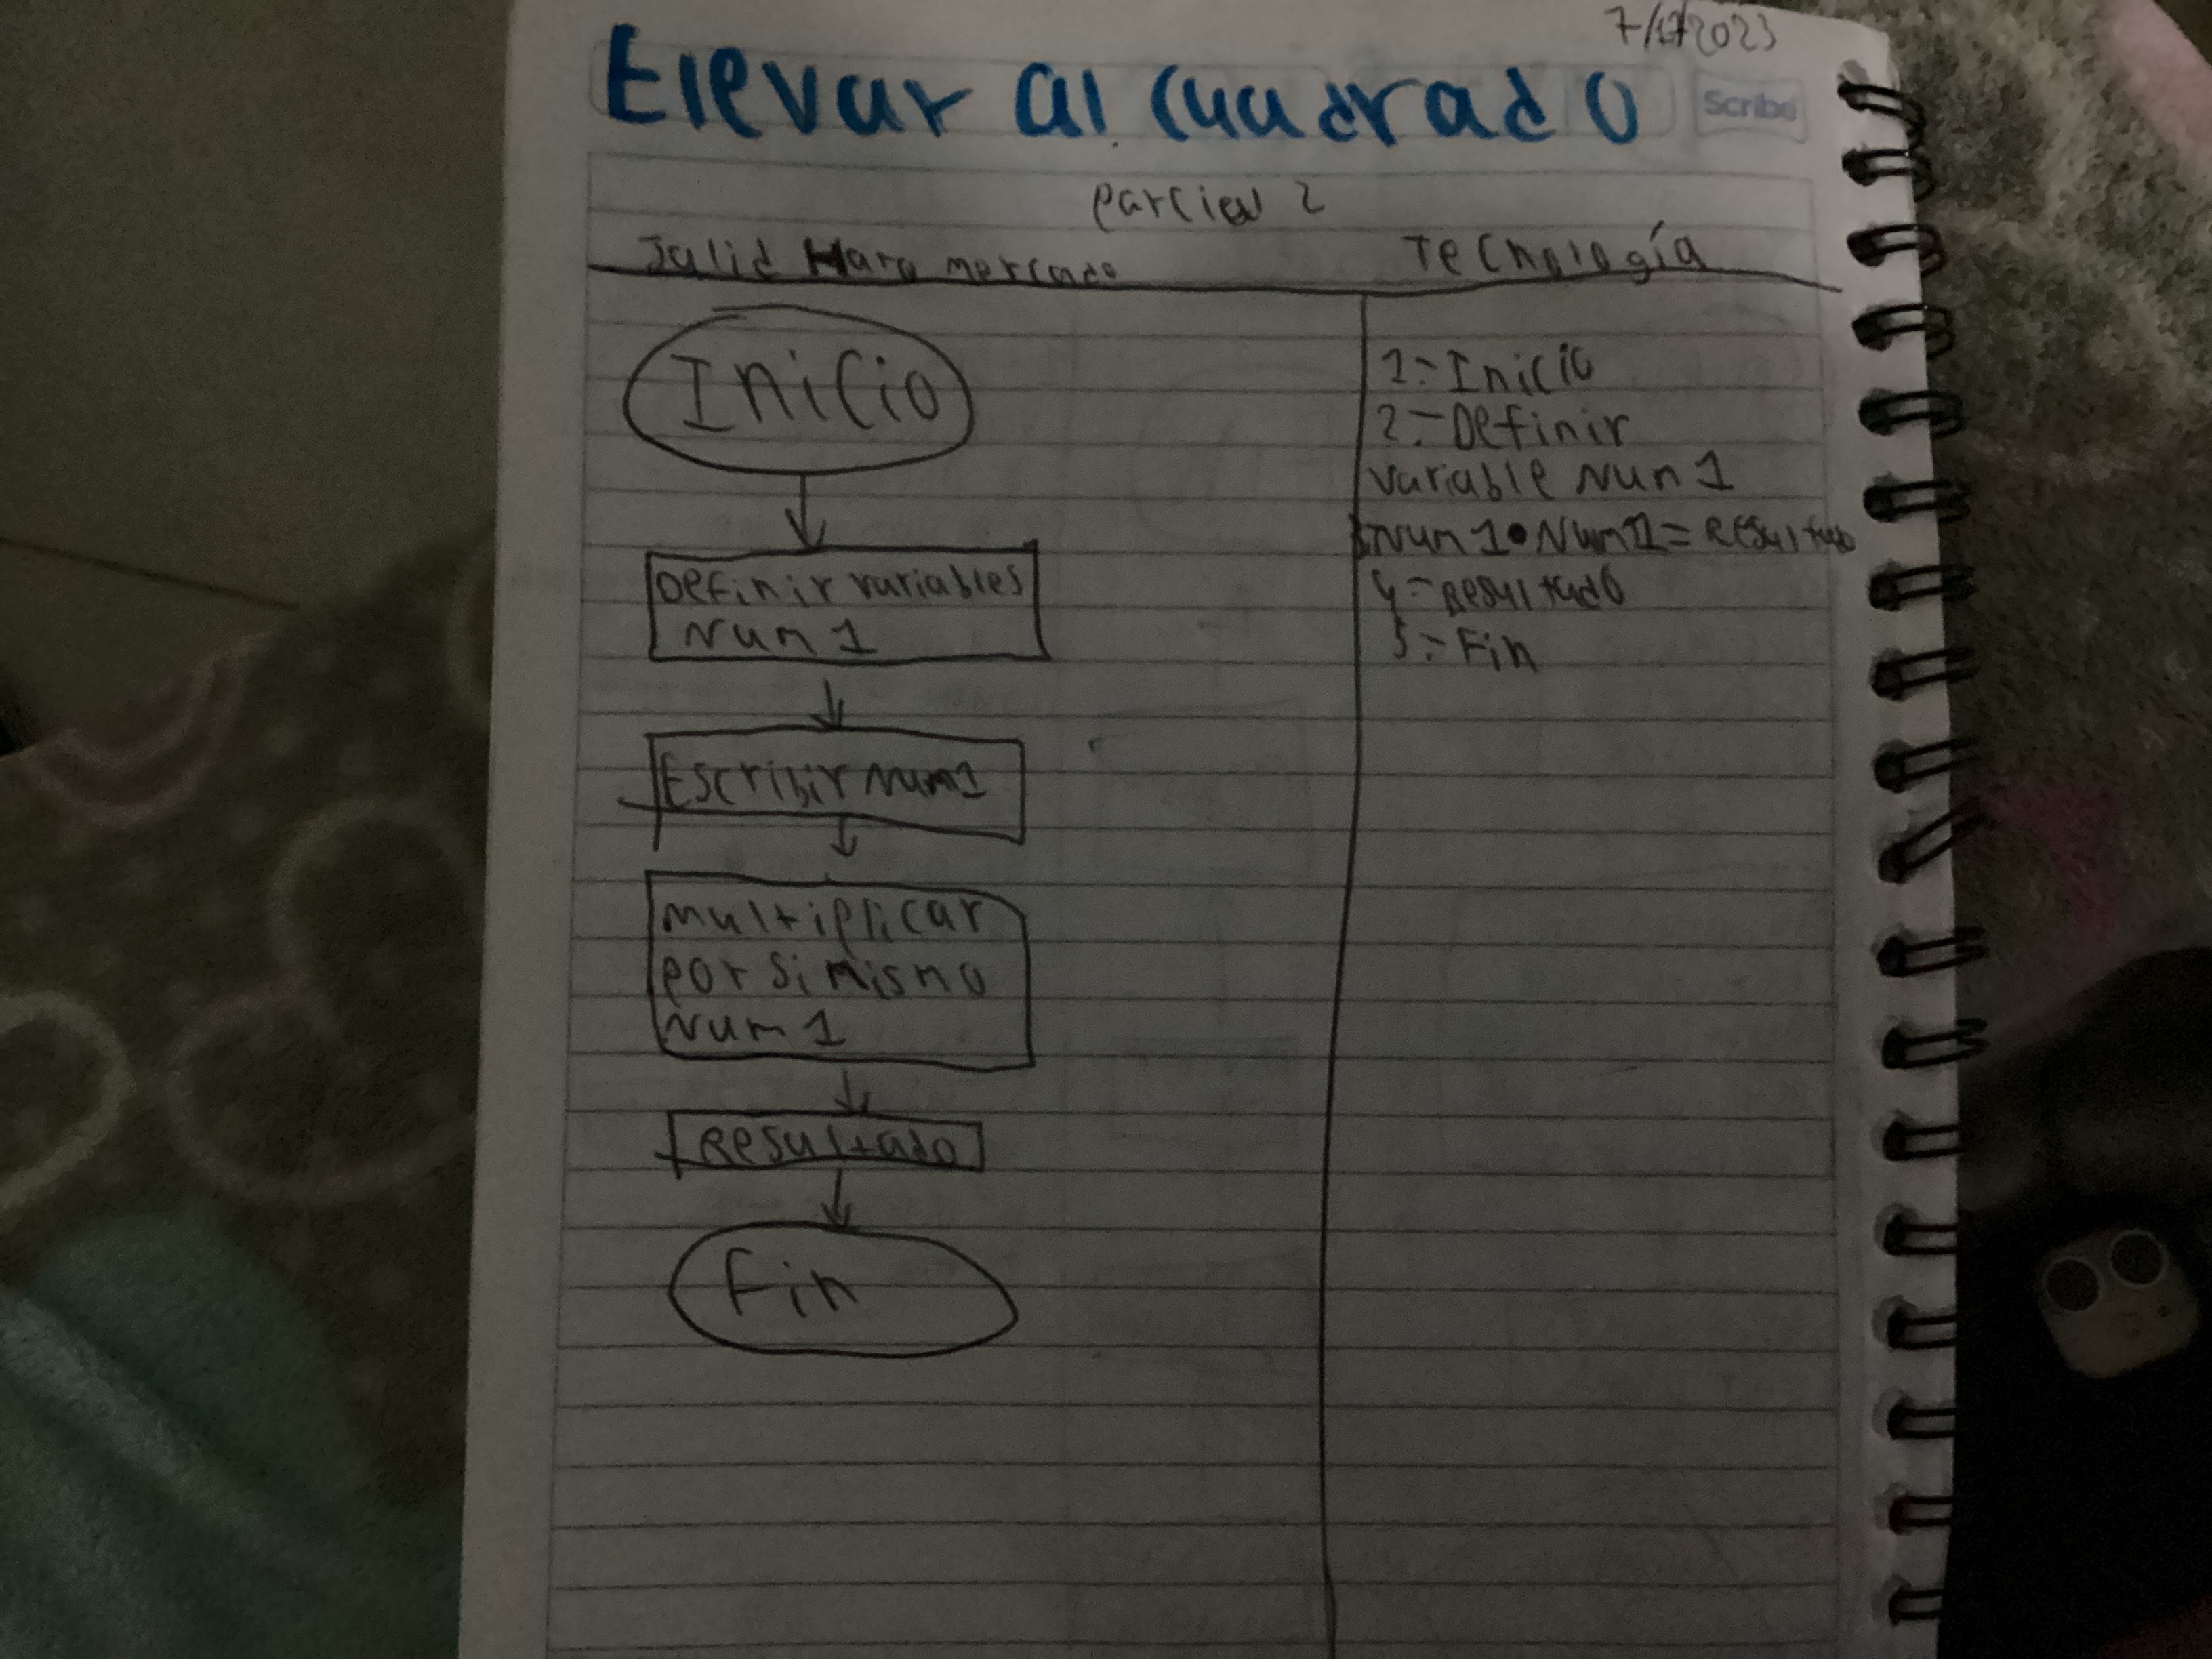 Elevar al cuadrado
Scribe
Parcial 2
Jalid Haro mercado
Tecnología
Inicio
Definir variables
Num 1
Escribir Num1
multiplicar
por si mismo
Num 1
Resultado
Fin
1.- Inicio
2.- Definir
variable Num 1
Num 1 • Num 1 = Resultado
4- Resultado
5.- Fin